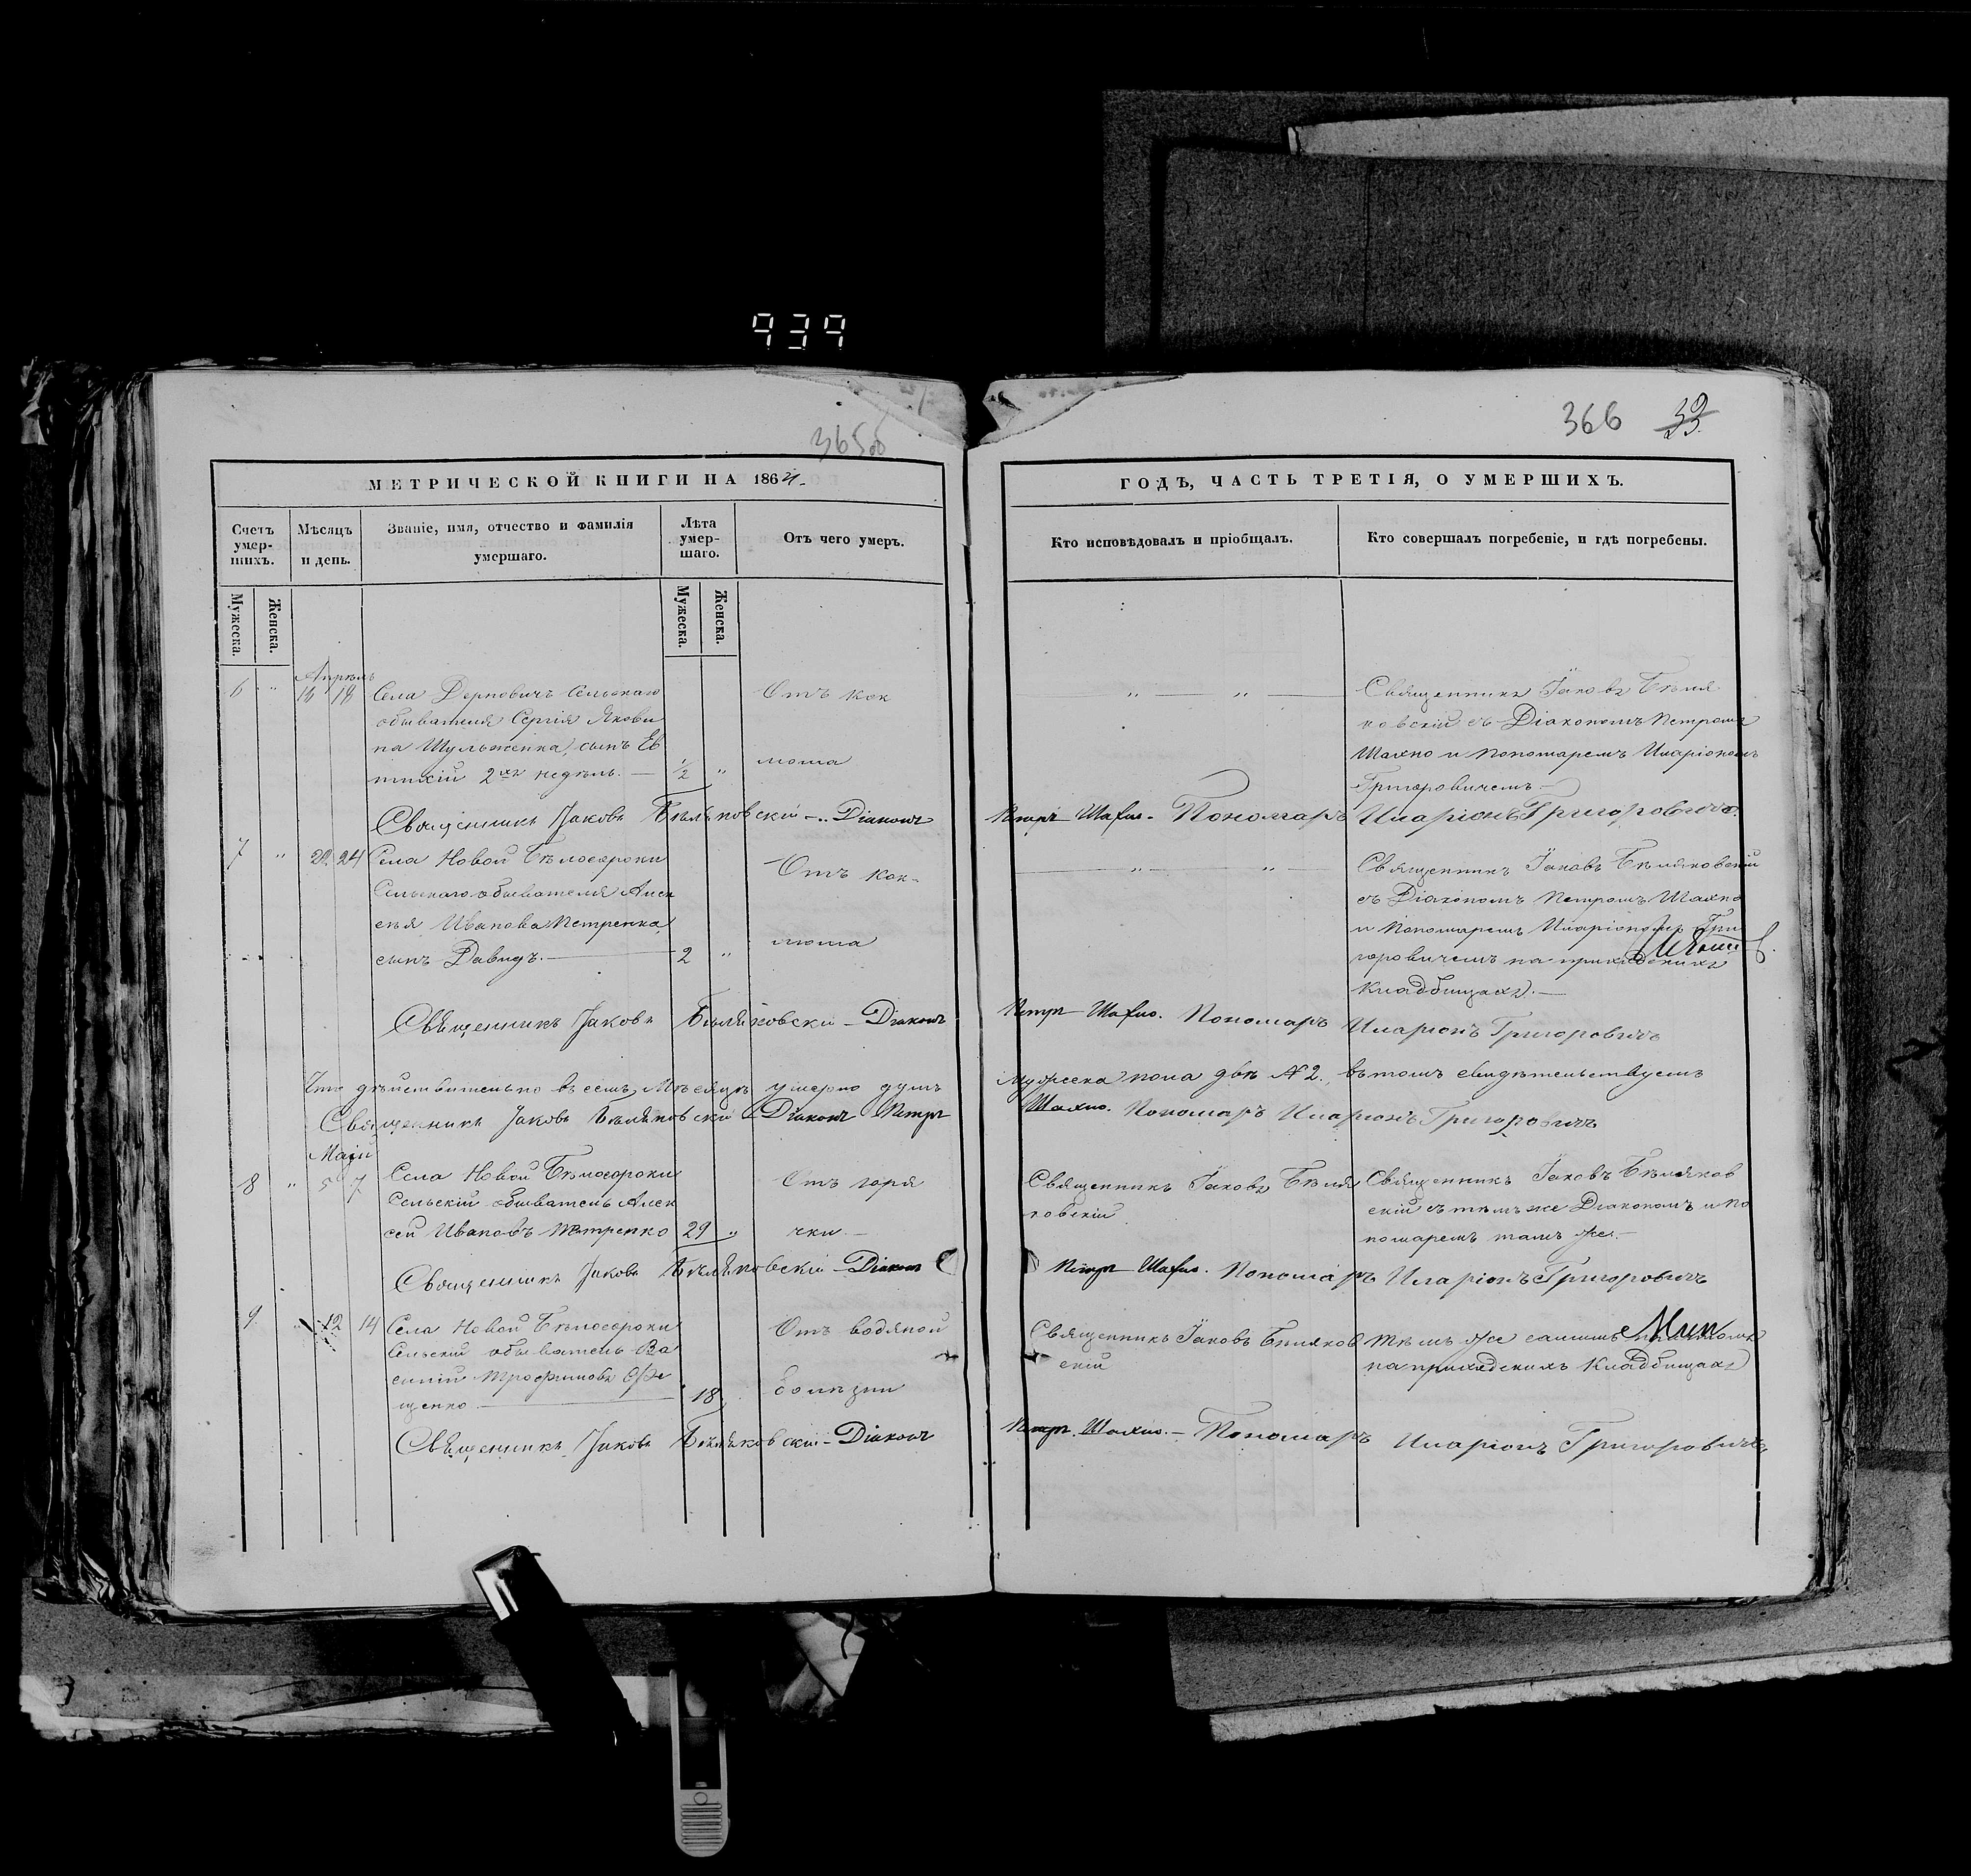 939
365об
366 39
МЕТРИЧЕСКОЙ КНИГИ НА 1864
ГОДЪ, ЧАСТЬ ТРЕТІЯ, О УМЕРШИХЪ.
Счетъ умер-шихъ.
Мѣсяцъ и день.
Званіе, имя, отчество и фамилія умершаго.
Лѣта умер-шаго.
Отъ чего умеръ.
Кто исповѣдовалъ и пріобщалъ.
Кто совершалъ погребеніе, и гдѣ погребены.
Мужеска. Женска.
Мужеска. Женска.
Апрѣль
6 " 16 18 Села Дерновичъ Сельскаго
обывателя Сергія Якови
на Шульженка, сынъ Ев
тихій 2хъ недѣль. — ½ "
Отъ кок
люша
" — " —
Священникъ Іаковъ Бѣля
ковскій съ Діакономъ Петромъ
Шахно и Пономаремъ Иларіономъ
Григоровичемъ
Священникъ Іаковъ Бѣляковскій – Діаконъ Петръ Шахно. Пономарь Иларіонъ Григоровичъ.
7 " 22 24 Села Новой Бѣлосороки
Сельскаго обывателя Алек
сѣя Иванова Петренка
сынъ Давидъ. — 2 "
Отъ кок-
люша
" — " —
Священникъ Іаковъ Бѣляковскій
съ Діакономъ Петромъ Шахно
и Пономаремъ Иларіономъ Гри
горовичемъ на приходскихъ
кладбищахъ. —
Священникъ Іаковъ Бѣляковскій – Діаконъ Петръ Шахно. Пономарь Иларіонъ Григоровичъ
Что дѣйствительно въ семъ Мѣсяцѣ умерло душъ Мужеска пола двѣ № 2. въ томъ свидѣтельствуемъ
Священникъ Іаковъ Бѣляковскій Діаконъ Петръ Шахно. Пономарь Иларіонъ Григоровичъ
Маій
8 " 5 7 Села Новой Бѣлосороки
Сельскій обыватель Алек
сей Ивановъ Петренко 29 "
Отъ горя
чки. —
Священникъ Іаковъ Бѣля
ковскій
Священникъ Іаковъ Бѣляков
скій съ тѣмъ же Діакономъ и По
номаремъ тамъ же. —
Священникъ Іаковъ Бѣляковскій – Діаконъ Петръ Шахно. Пономарь Иларіонъ Григоровичъ
9. " 12 14 Села Новой Бѣлосороки
Сельскій обыватель Ва
силій Трофимовъ
щенко. — 18
Отъ водяной
болѣзни
Священникъ Іаковъ Бѣляков
скій
тѣмъ же самимъ
на приходскихъ кладбищахъ
Священникъ Іаковъ Бѣляковскій – Діаконъ Петръ Шахно. – Пономарь Иларіонъ Григоровичъ